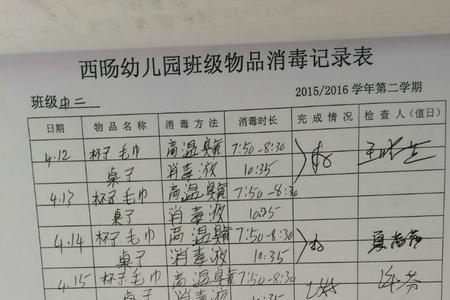 西旸幼儿园班级物品消毒记录表
班级 中二 2015/2016 学年第二学期
日期 物品名称 消毒方法 消毒时长 完成情况 检查人(值日)
4.12 杯子毛巾 高温臭氧 7:50-8:30
桌子 消毒液 10:35
4.13 杯子毛巾 高温臭氧 7:50-8:30
桌子 消毒液 10:35
4.14 杯子毛巾 高温臭氧 7:50-8:30
桌子 消毒液 10:35
4.15 杯子毛巾 高温臭氧 7:50-8:30
桌子 消毒液 10:35